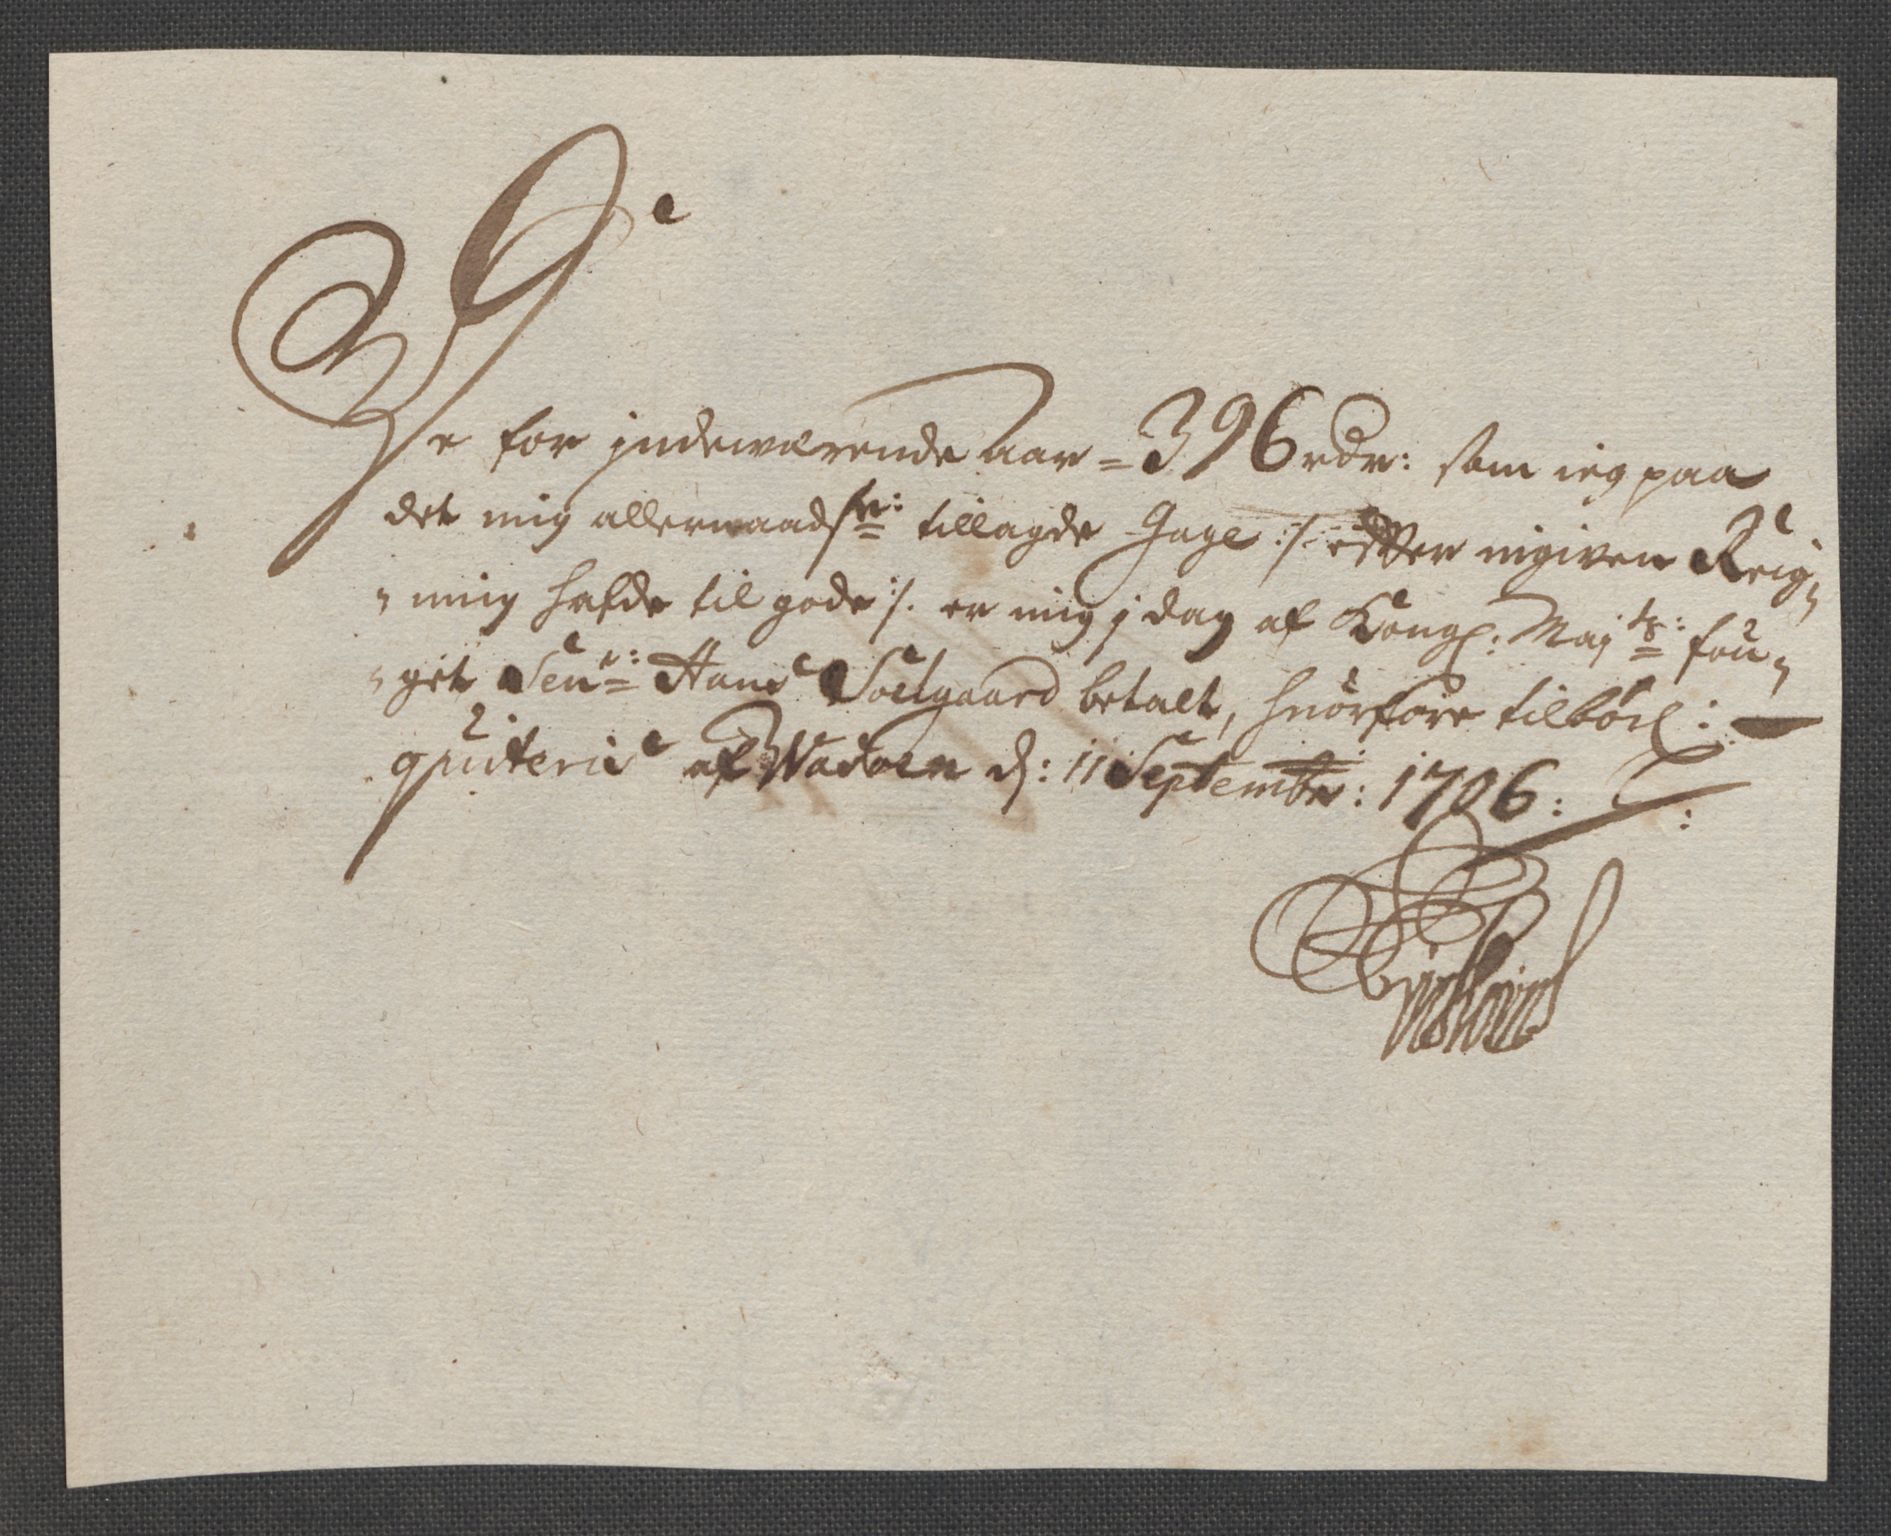 De for jndeværende Aar = 396 rdr: som ieg paa
det mig allernaadste: tillagde Gage :/: efter ingiven Reig„
„ning hafde til gode :/: er mig j dag af Kongl: Majts: fou„
„get Senr: Hans Soelgaard betalt, huorfore tilbørl:
qviteris af Wadøen d: 11 Septembr: 1706: